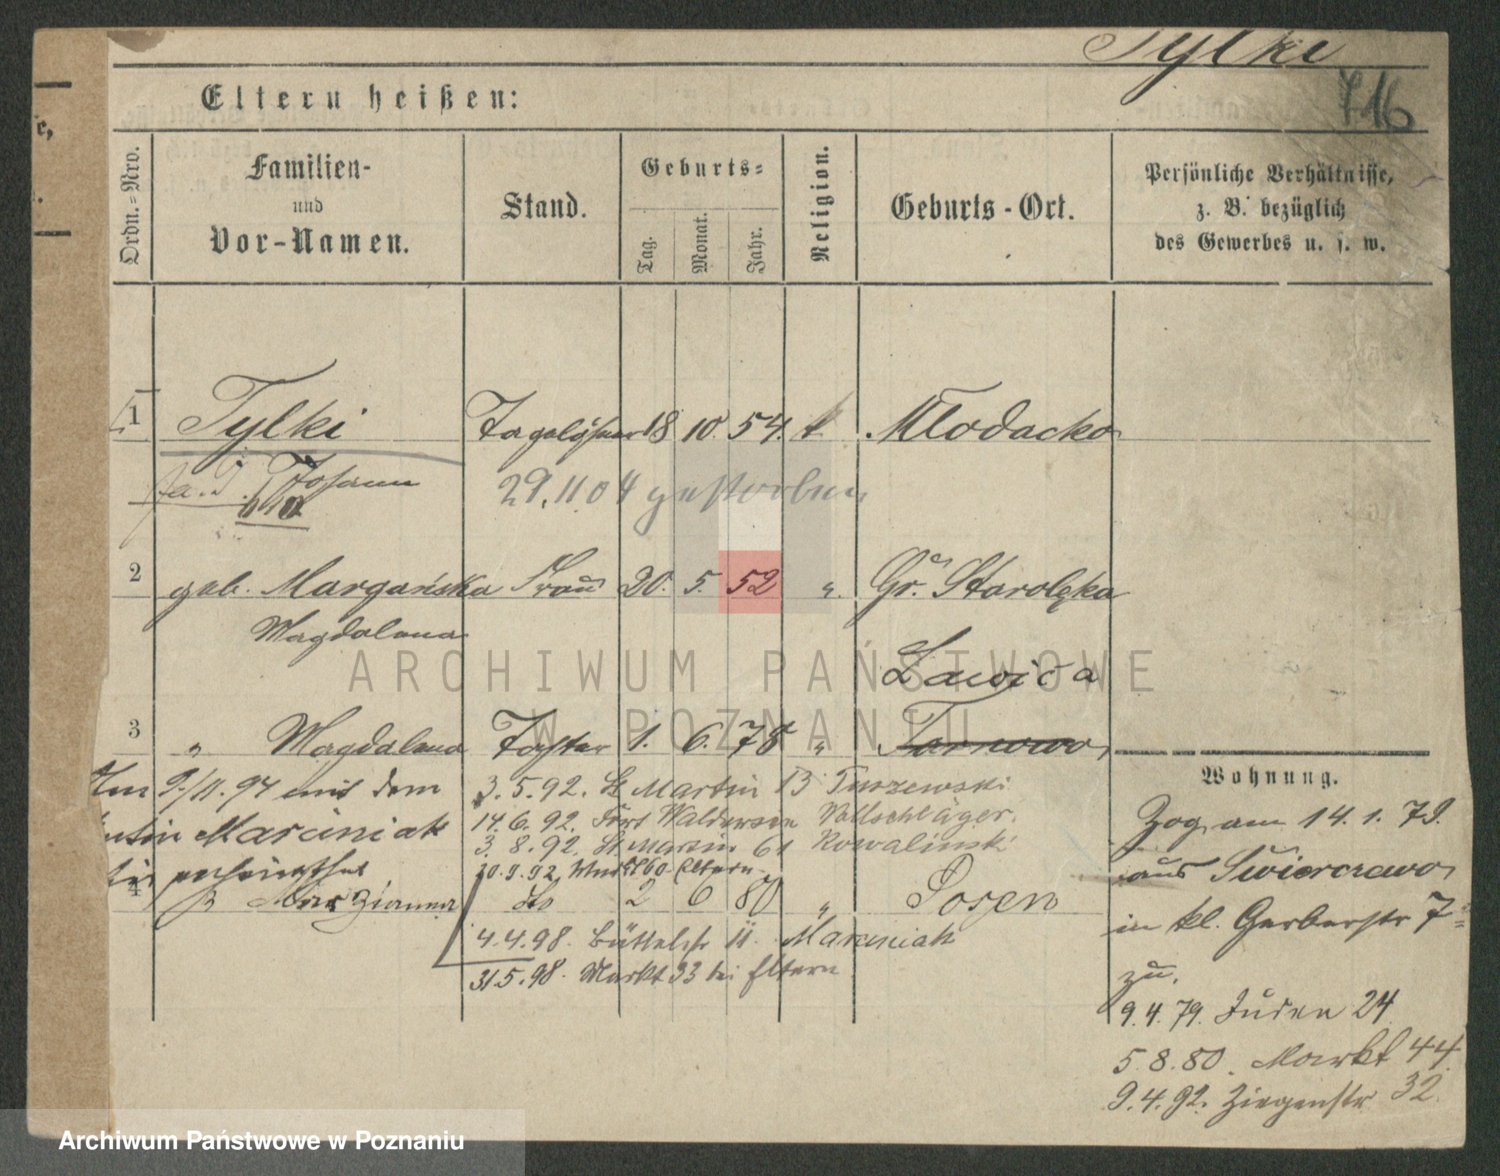 Tylki
716
Eltern heißen:
Ordn.-Nro.
Familien-
und
Vor-Namen.
Stand.
Geburts-
Tag.
Monat.
Jahr.
Religion.
Geburts-Ort.
Persönliche Verhältnisse,
z. B. bezüglich
des Gewerbes u. s. w.
1 Tylki Tagelöhner 18 10. 54. k. Młodacko
Johann 29.11.04 gestorben
2 geb. Margańska Frau 20. 5. 52 „ Gr. Starolęka
Magdalena
Zawica
3 „ Magdalena Tochter 1. 6. 78 „ Tarnowo
9./11.94 mit dem
Marciniak
3.5.92. St Martin 13 Tuszewski
14.6.92. Fort Waldersee Vollschläger.
3.8.92. St Martin 61 Kowalinski
20.9.92. Eltern
4 Marzianna do 2 6 80 „ Posen
4.4.98. Büttelstr 11. Marciniak
31.5.98. Markt 93 bei Eltern
Wohnung.
Zog am 14.1.79.
aus Świerczewo
in kl. Gerberstr 7
zu.
9.4.79. Juden 24
5.8.80. Markt 44
9.4.92. Ziegenstr 32.
ARCHIWUM PAŃSTWOWE
W POZNANIU
Archiwum Państwowe w Poznaniu